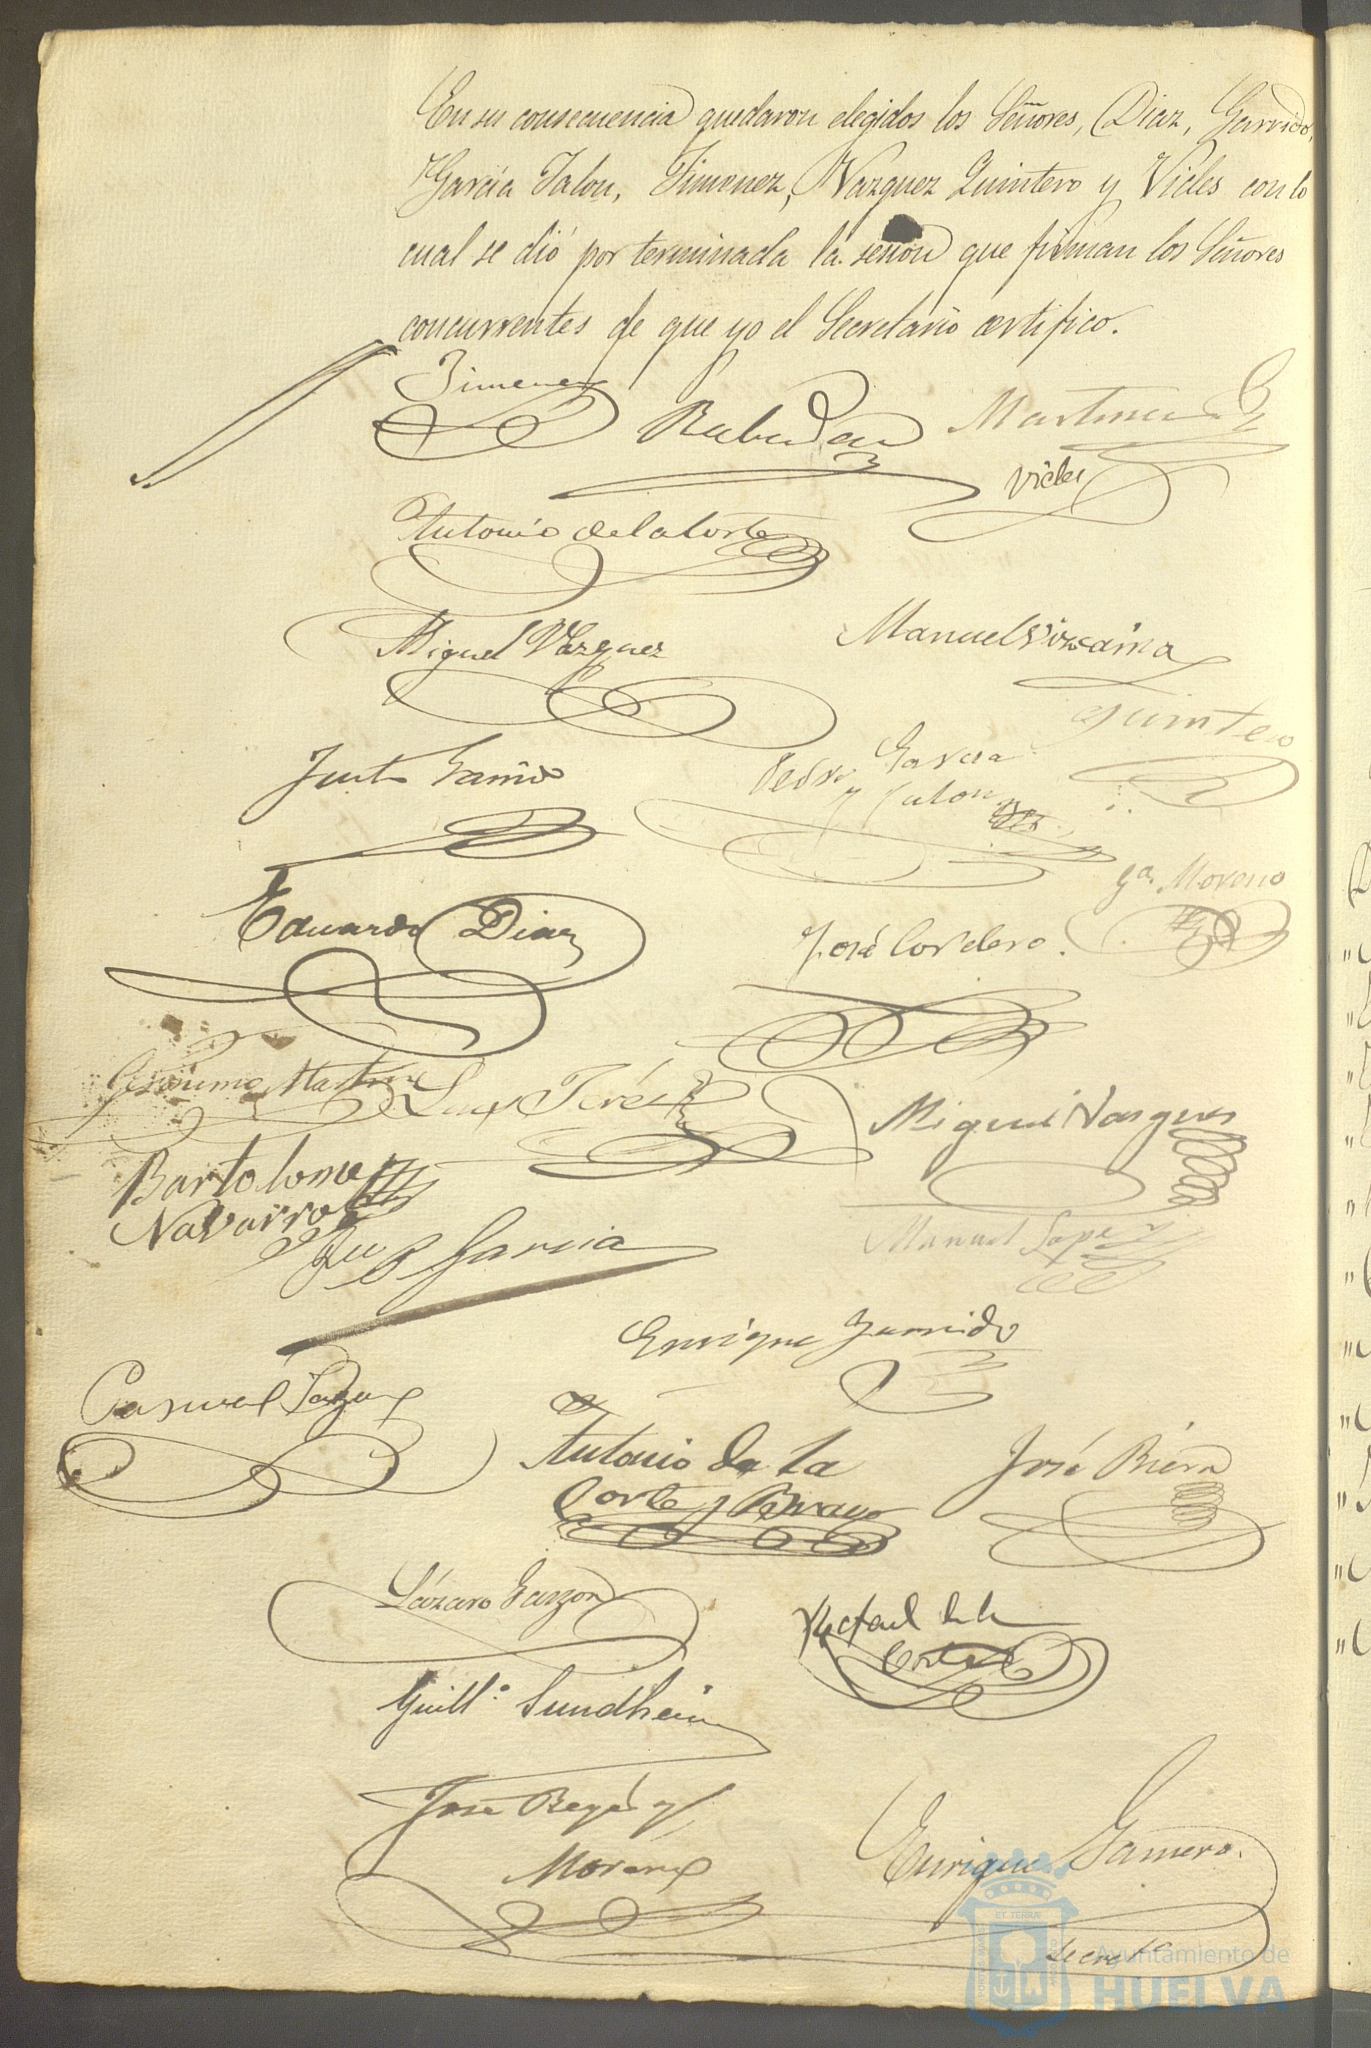 En su consecuencia quedaron elegidos los Señores, Diaz, Garrido,
Garcia Talon, Jimenez, Vazquez Quintero y Vides con lo
cual se dió por terminada la sesion que firman los Señores
concurrentes de que yo el Secretario certifico.
Jimenez
Rabadan
Martinez
Vides
Antonio de la Corte
Miguel Vazquez
Manuel Vizcaino
Quintero
Justo Garrido
Pedro Garcia
y Talon
Ga. Moreno
Eduardo Diaz
José Cordero.
Geronimo Martin
Miguel Vazquez
Bartolome
Navarro
Garcia
Manuel Lopez
Enrique Garrido
Antonio de la
Corte y Bravo
José
Lázaro Garzon
Rafael de la
Corte
Guill.º Sundheim
José y
Moreno
Enrique Gamero.
Secret.º
ET TERRÆ
Ayuntamiento de
HUELVA